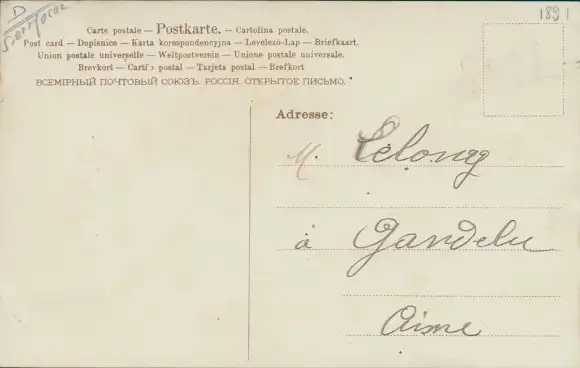 D
1891
Carte postale — Postkarte. — Cartolina postale.
Post card — Dopisnice — Karta korespondencyjna — Levelező-Lap — Briefkaart.
Union postale universelle — Weltpostverein — Unione postale universale.
Brevkort — Carta postal — Tarjeta postal — Brefkort
ВСЕМІРНЫЙ ПОЧТОВЫЙ СОЮЗЪ. РОССІЯ. ОТКРЫТОЕ ПИСЬМО.
Adresse:
M. Lelong
à Gandelu
Aisne